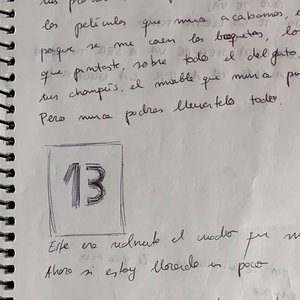 las películas que mira acabamos,
porque se me caen las baquetas, lo
que pintaste, sobre todo el del gato,
tus champús, el mueble que mira pa
Pero nunca podras llevartelo todo.
13
Este era realmente el cuador que m
Ahora si estoy llorando un poco